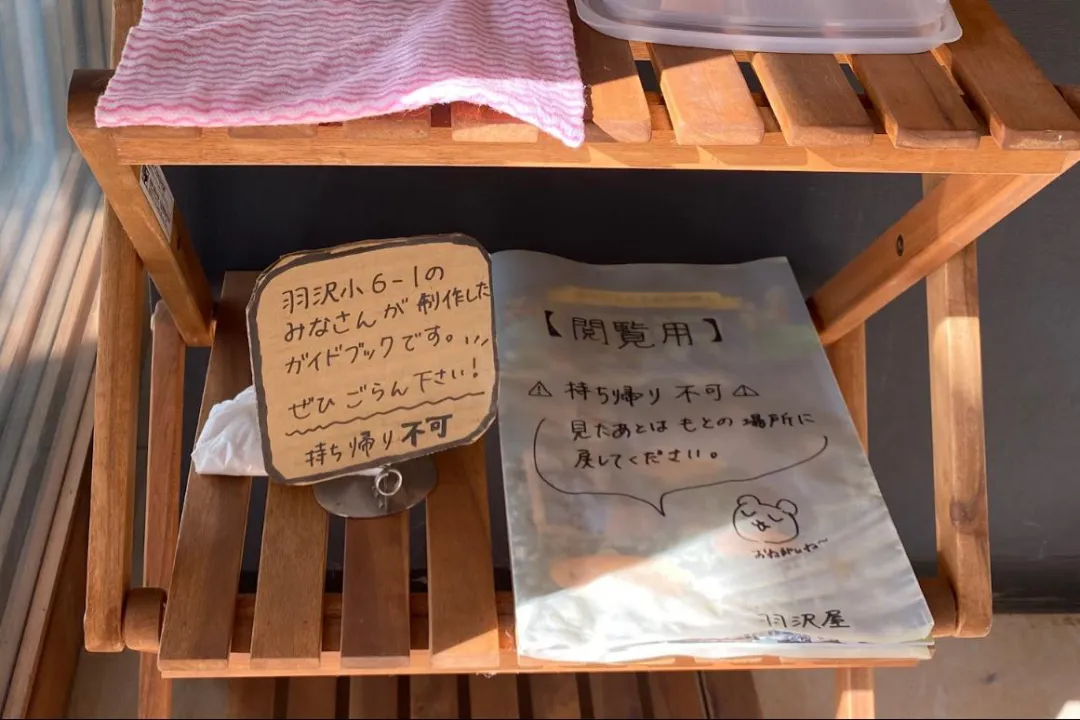 羽沢小6-1の
みなさんが制作した
ガイドブックです。
ぜひごらん下さい!
持ち帰り不可
【閲覧用】
⚠ 持ち帰り 不可 ⚠
見たあとは もとの場所に
戻してください。
おねがいね〜
羽沢屋